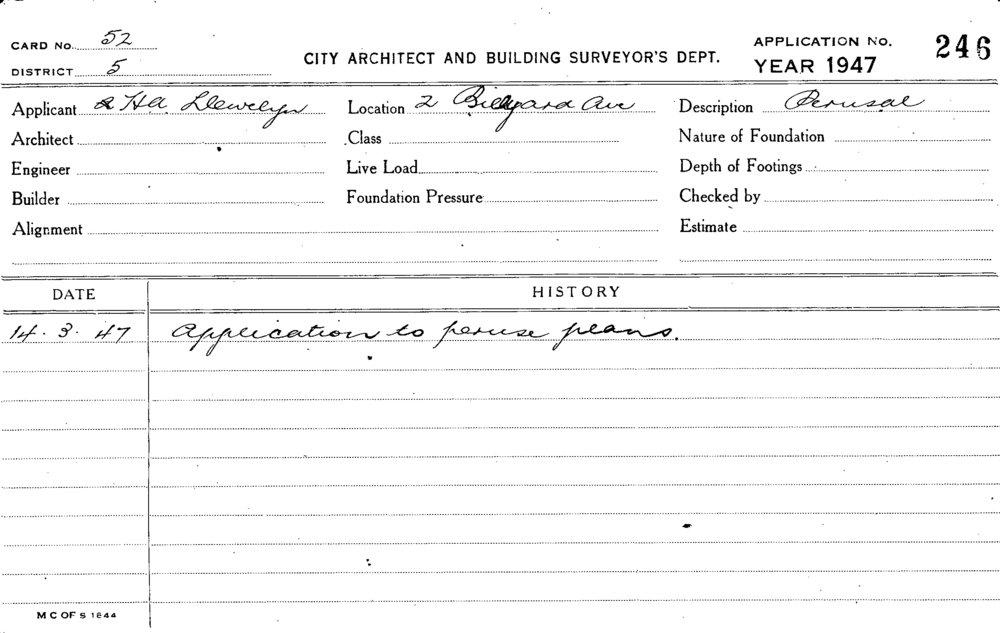 CARD No. 52
DISTRICT 5
CITY ARCHITECT AND BUILDING SURVEYOR'S DEPT.
APPLICATION No. 246
YEAR 1947
Applicant Llewelyn Location 2 Billyard Ave Description Perusal
Architect Class Nature of Foundation
Engineer Live Load Depth of Footings
Builder Foundation Pressure Checked by
Alignment Estimate
DATE HISTORY
14.3.47 Application to peruse plans.
M C OF S 1844